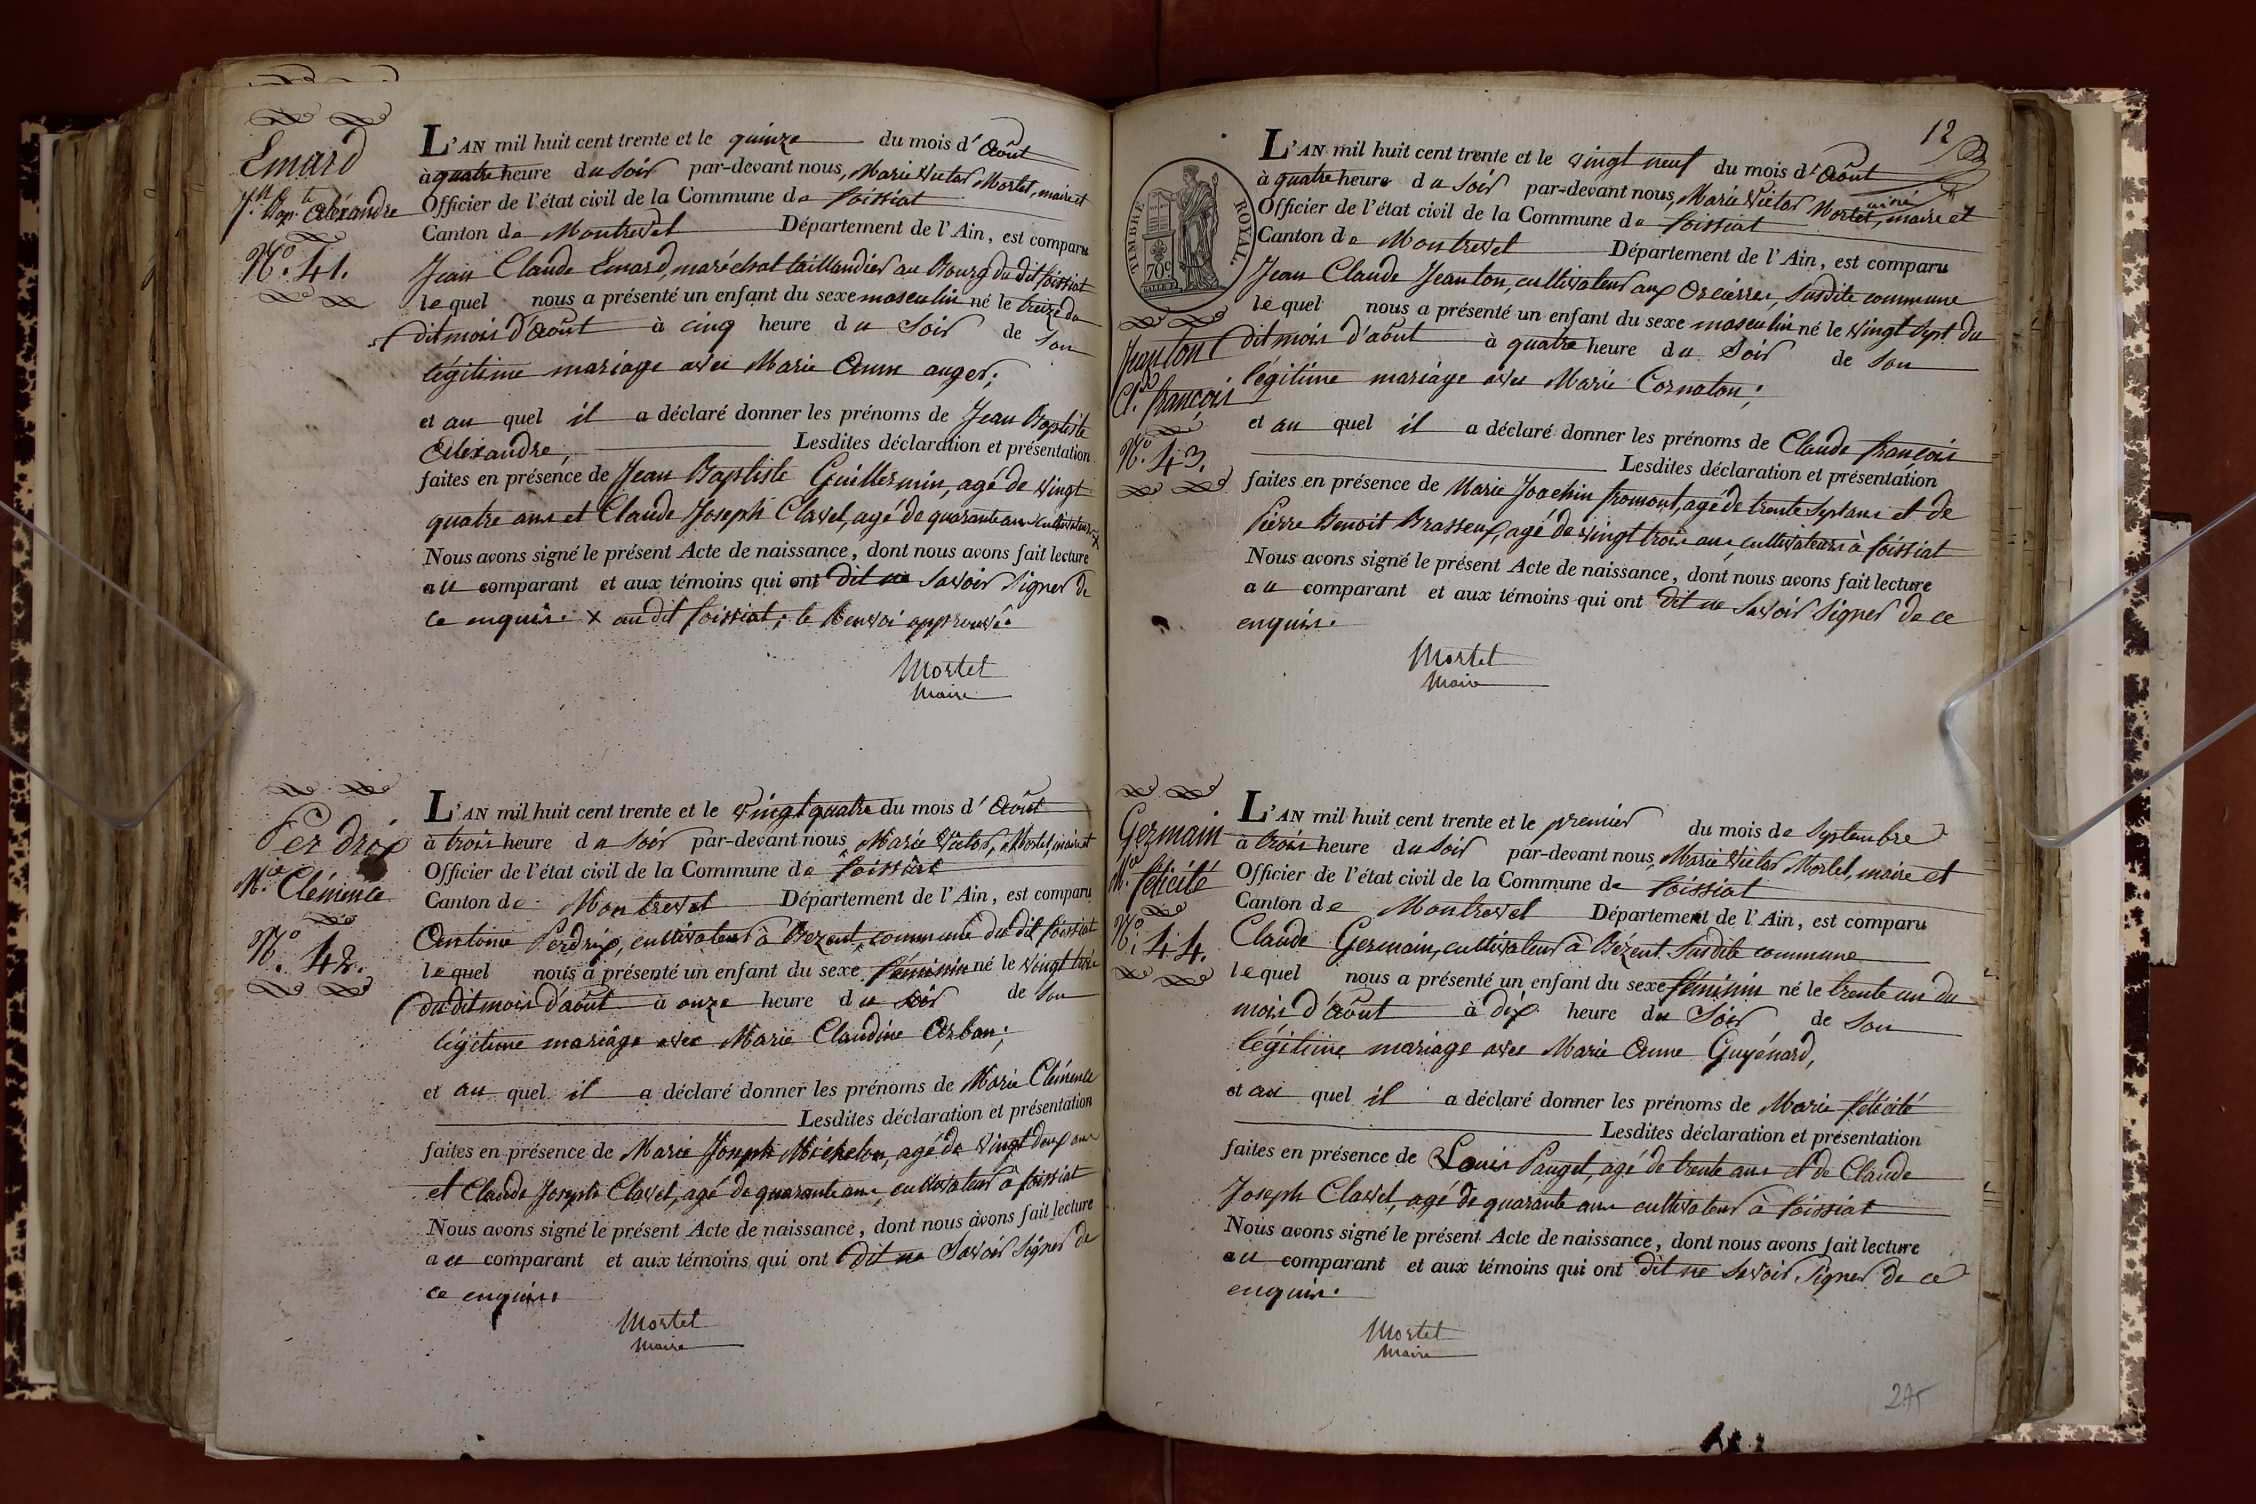 Emard
J.n Bap.te Alexandre
N.o 41.
L'AN mil huit cent trente et le quinze du mois d' Août
à quatre heure du soir par-devant nous, Marie Victor Mortel, maire et
Officier de l'état civil de la Commune de foissiat
Canton de Montrevel Département de l'Ain, est comparu
Jean Claude Emard, maréchal taillandier au Bourg du dit foissiat
lequel nous a présenté un enfant du sexe masculin né le treize du
dit mois d'Août à cinq heure du Soir de son
légitime mariage avec Marie Anne auger;
et au quel il a déclaré donner les prénoms de Jean Baptiste
Alexandre, Lesdites déclaration et présentation
faites en présence de Jean Baptiste Guillermin, agé de vingt
quatre ans et Claude Joseph Clavel, agé de quarante ans cultivateurs x
Nous avons signé le présent Acte de naissance, dont nous avons fait lecture
au comparant et aux témoins qui ont dit ne Savoir Signer de
ce enquis. x au dit foissiat; le Renvoi approuvé.
Mortel
Maire
Perdrix
M.ie Clémence
N.o 42.
L'AN mil huit cent trente et le vingt quatre du mois d' Août
à trois heure du soir par-devant nous, Marie Victor, Mortel, maire et
Officier de l'état civil de la Commune de foissiat
Canton de Montrevel Département de l'Ain, est comparu
Antoine Perdrix, cultivateur à Bezent, commune du dit foissiat
lequel nous a présenté un enfant du sexe féminin né le vingt trois
du dit mois d'août à onze heure du soir de son
légitime mariage avec Marie Claudine Arban;
et au quel il a déclaré donner les prénoms de Marie Clémence
Lesdites déclaration et présentation
faites en présence de Marie Joseph Michelon, agé de vingt deux ans
et Claude Joseph Clavel, agé de quarante ans, cultivateur à foissiat
Nous avons signé le présent Acte de naissance, dont nous avons fait lecture
au comparant et aux témoins qui ont dit ne Savoir Signer de
ce enquis.
Mortel
Maire
12
TIMBRE ROYAL
70c
Jeanton
Cl.de françois
N.o 43.
L'AN mil huit cent trente et le vingt neuf du mois d' Août
à quatre heure du Soir par-devant nous, Marie Victor Mortel, maire et
Officier de l'état civil de la Commune de foissiat
Canton de Montrevel Département de l'Ain, est comparu
Jean Claude Jeanton, cultivateur aux Orcières, Susdite commune
lequel nous a présenté un enfant du sexe masculin né le vingt Sept du
dit mois d'août à quatre heure du Soir de Son
légitime mariage avec Marie Cornaton;
et au quel il a déclaré donner les prénoms de Claude françois
Lesdites déclaration et présentation
faites en présence de Marie Joachin fromont, agé de trente Sept ans et de
Pierre Benoit Brasseur, agé de vingt trois ans, cultivateurs à foissiat
Nous avons signé le présent Acte de naissance, dont nous avons fait lecture
au comparant et aux témoins qui ont dit ne Savoir Signer de ce
enquis.
Mortel
Maire
Germain
M.ie félicité
N.o 44.
L'AN mil huit cent trente et le premier du mois de Septembre
à trois heure du soir par-devant nous, Marie Victor Mortel, maire et
Officier de l'état civil de la Commune de foissiat
Canton de Montrevel Département de l'Ain, est comparu
Claude Germain, cultivateur à Bézent Susdite commune
lequel nous a présenté un enfant du sexe féminin né le trente un du
mois d'Août à dix heure du Soir de Son
légitime mariage avec Marie Anne Guyénard,
et au quel il a déclaré donner les prénoms de Marie félicité
Lesdites déclaration et présentation
faites en présence de Louis Pauget, agé de trente ans et de Claude
Joseph Clavel, agé de quarante ans cultivateur à foissiat
Nous avons signé le présent Acte de naissance, dont nous avons fait lecture
au comparant et aux témoins qui ont dit ne Savoir Signer de ce
enquis.
Mortel
Maire